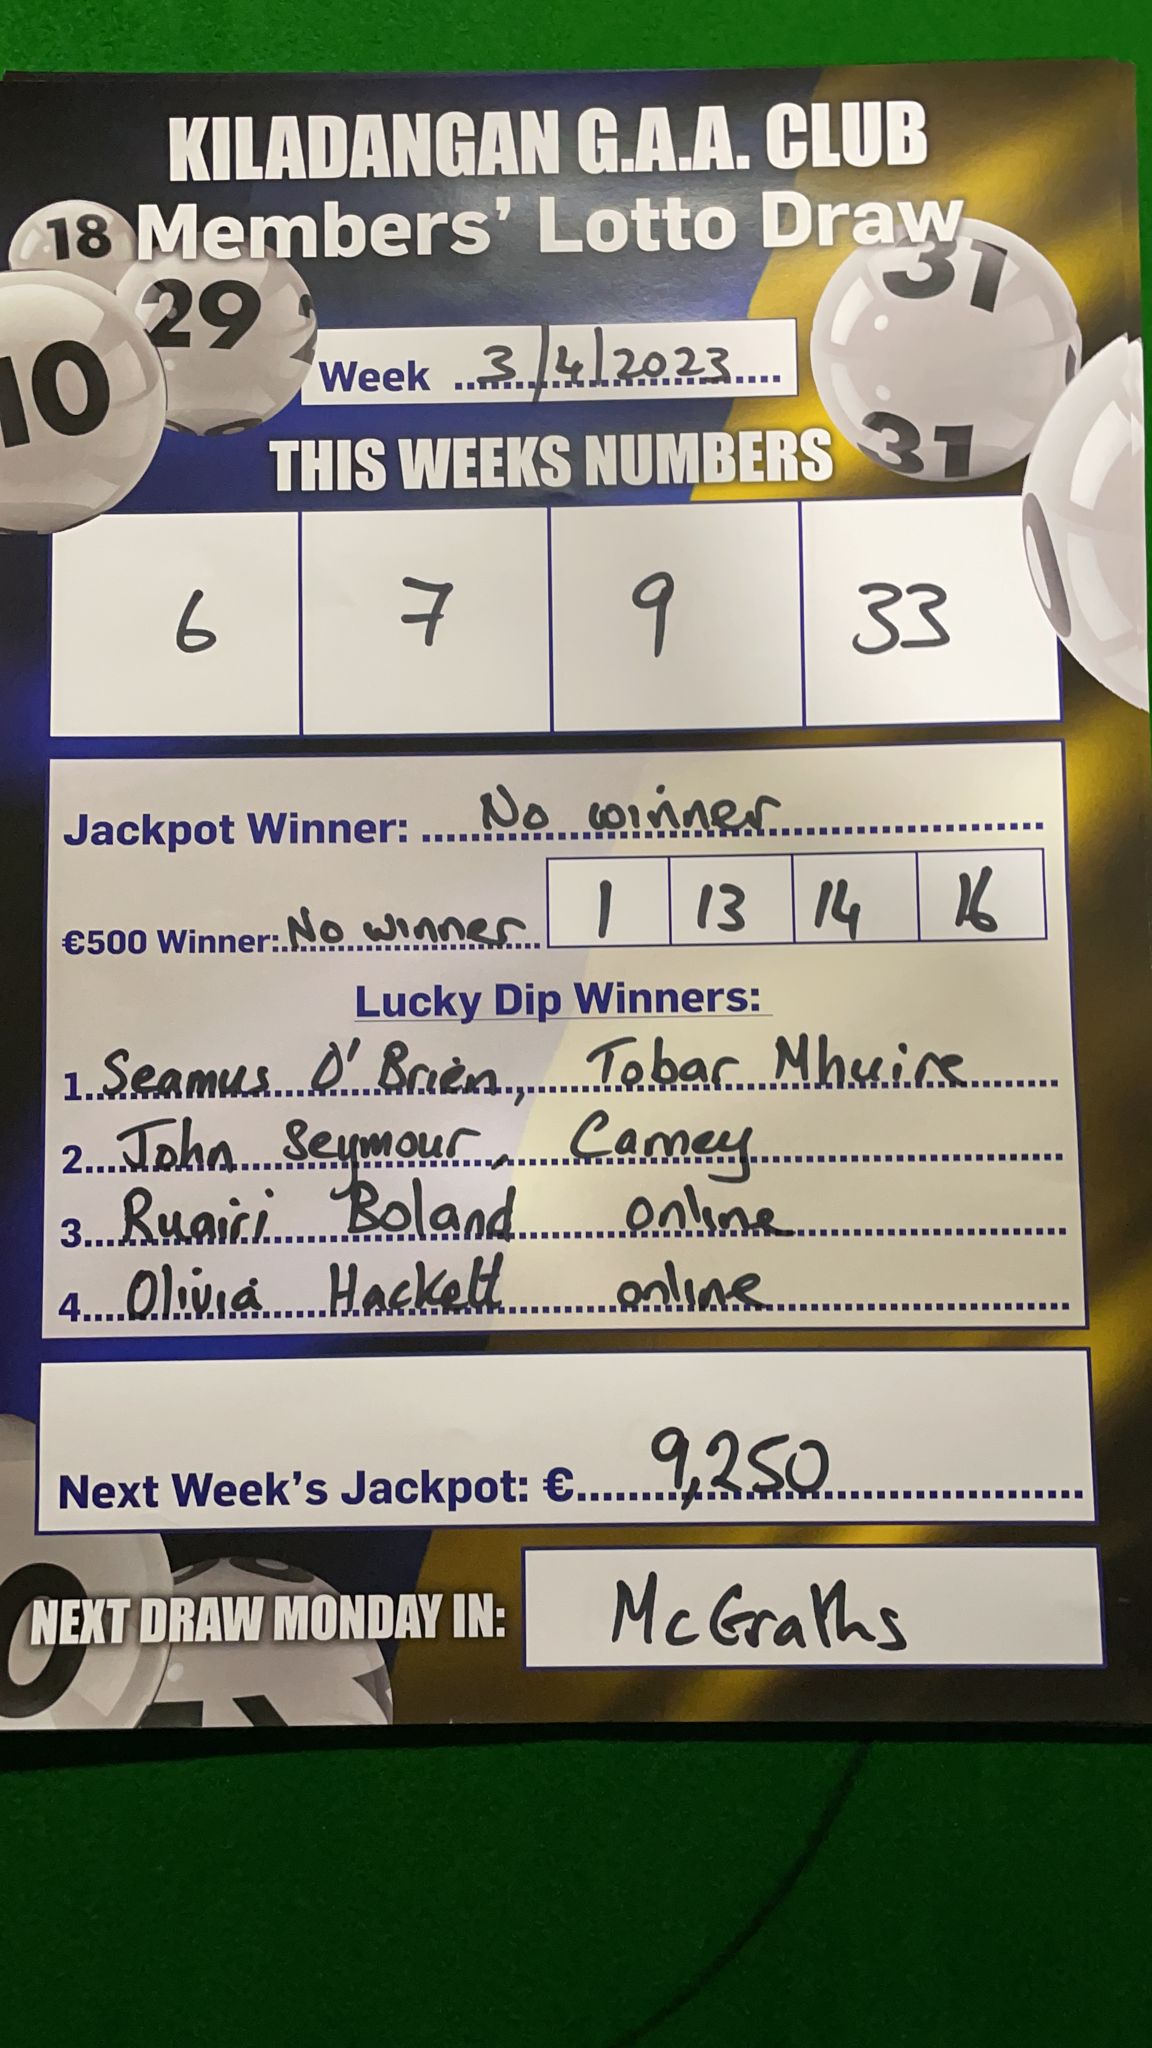 KILADANGAN G.A.A. CLUB
Members' Lotto Draw
18
29
10
31
31
Week 3/4/2023
THIS WEEKS NUMBERS
6 7 9 33
Jackpot Winner: No winner
€500 Winner: No winner 1 13 14 16
Lucky Dip Winners:
1. Seamus O'Brien, Tobar Mhuire
2. John Seymour, Carney
3. Ruairi Boland online
4. Olivia Hackett online
Next Week's Jackpot: € 9,250
NEXT DRAW MONDAY IN: McGraths